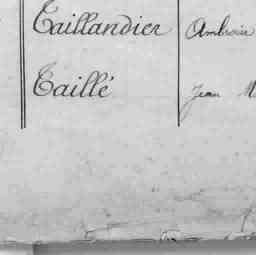 Taillandier Ambroise
Taillé Jean M